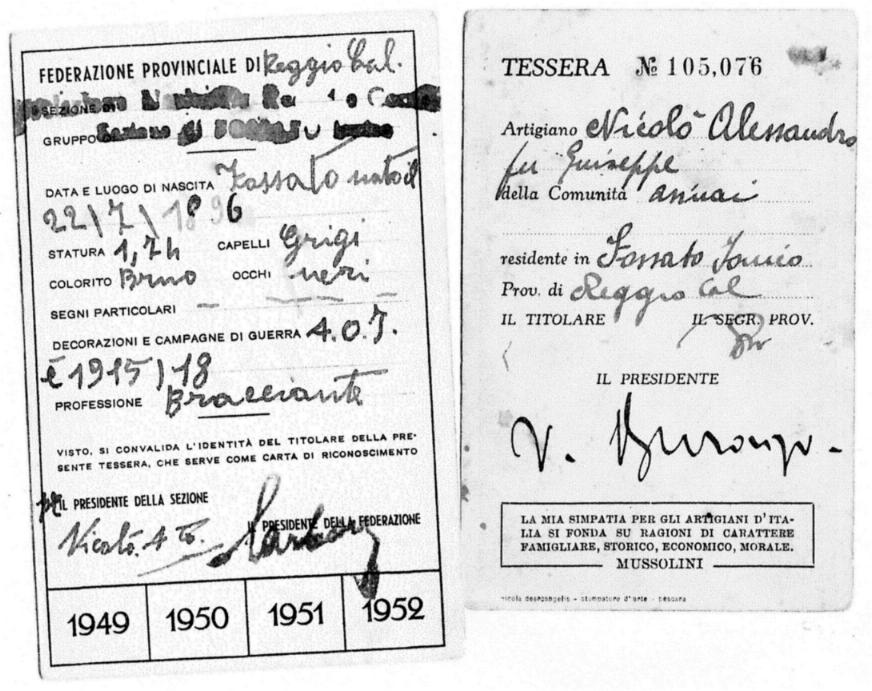 FEDERAZIONE PROVINCIALE DI Reggio Cal.
SEZIONE DI
GRUPPO Sezione di FOSSATO Ionico
DATA E LUOGO DI NASCITA Fossato nato il
22/7/1896
STATURA 1,74 CAPELLI Grigi
COLORITO Bruno OCCHI neri
SEGNI PARTICOLARI —
DECORAZIONI E CAMPAGNE DI GUERRA A.O.I.
è 1915/18
PROFESSIONE Bracciante
VISTO, SI CONVALIDA L'IDENTITÀ DEL TITOLARE DELLA PRE-
SENTE TESSERA, CHE SERVE COME CARTA DI RICONOSCIMENTO
IL PRESIDENTE DELLA SEZIONE
IL PRESIDENTE DELLA FEDERAZIONE
Nicolò A
1949 1950 1951 1952
TESSERA № 105,076
Artigiano Nicolò Alessandro
fu Guiseppe
della Comunità
residente in Fossato Ionico
Prov. di Reggio Cal
IL TITOLARE IL SEGR. PROV.
IL PRESIDENTE
V.
LA MIA SIMPATIA PER GLI ARTIGIANI D'ITA-
LIA SI FONDA SU RAGIONI DI CARATTERE
FAMIGLIARE, STORICO, ECONOMICO, MORALE.
MUSSOLINI
nicola dearcangelis - stampatore d'arte - pescara